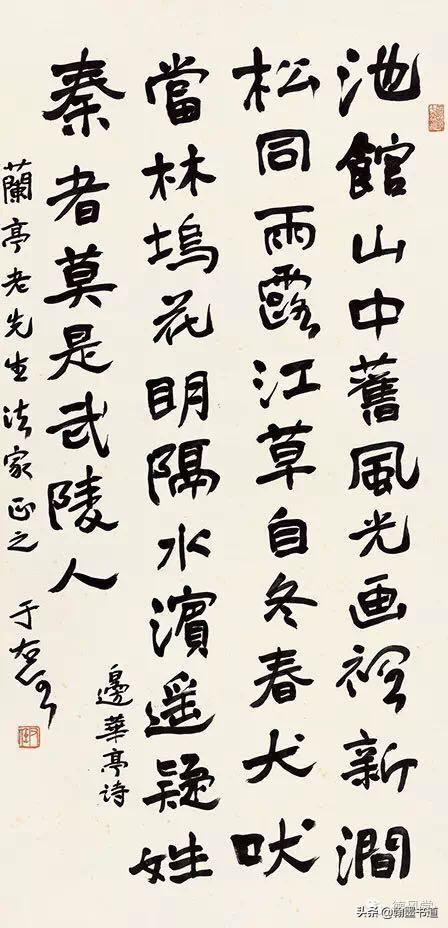 池館山中舊風光画裡新澗
松同雨露江草自冬春犬吠
當林塢花眀隔水濱遥疑姓
秦者莫是武陵人
邊華亭诗
蘭亭老先生法家正之 于右任
头条@翰墨书道